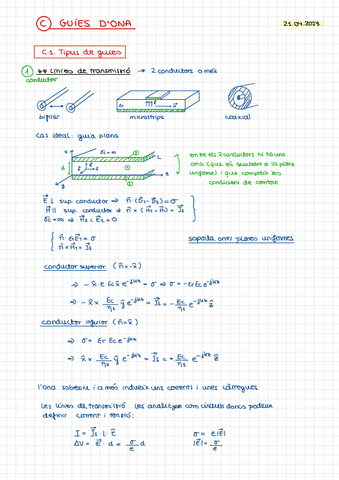 C GUIES D'ONA
21.04.2023
C.1. Tipus de guies
1 ** Línies de transmissió → 2 conductors o més
conductor
bipolar
microstrips
coaxial
Cas ideal: guia plana
x
σc = ∞
L
d
z
y
entre els 2 conductors hi ha una
ona (que és semblant a la plana
uniforme) i que compleix les
condicions de contorn
E⃗ ⊥ sup. conductor ⇒ n̂ (D⃗1 - D⃗2) = σ
H⃗ || sup. conductor ⇒ n̂ × (H⃗1 - H⃗2) = J⃗s
σc = ∞ ⇒ H⃗2 (E⃗2 = 0
{ n̂ · ε1E⃗1 = σ
n̂ × H⃗1 = J⃗s
suporta ones planes uniformes
conductor superior (n̂ = -x̂)
⇒ - x̂ · ε E0 x̂ e^-jkz = σ ⇒ σ = - ε E0 e^-jkz
⇒ - x̂ × E0/η ŷ e^-jkz = J⃗s = - E0/η e^-jkz ẑ
conductor inferior (n̂ = x̂)
⇒ σ = ε E0 e^-jkz
⇒ x̂ × E0/η ŷ e^-jkz = J⃗s = + E0/η e^-jkz ẑ
l'ona i a més indueix uns corrents i unes càrregues
Les línies de transmissió les analitzem com circuits doncs podem
definir corrent i tensió:
I = J⃗s · L · ẑ
σ = ε|E⃗|
ΔV = E⃗ · d = σ/ε d
|E⃗| = σ/ε